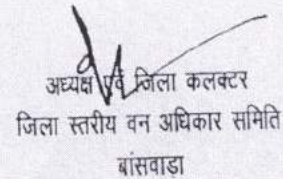 अध्यक्ष एवं जिला कलक्टर
जिला स्तरीय वन अधिकार समिति
बांसवाड़ा